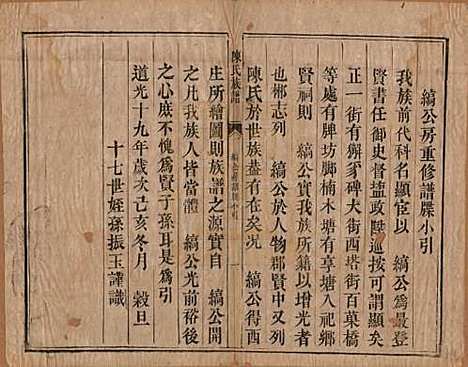 縞公房重修譜牒小引
我族前代科名顯宦以 縞公為最登
賢書任御史督壚政陞巡按可謂顯矣
正一街有獬豸碑大街西塔街百菓橋
等處有牌坊脚楠木塘有享塘入祀鄉
賢祠則 縞公實我族所籍以增光者
也郴志列 縞公於人物郡賢中又列
陳氏於世族蓋有在矣况 縞公得西
陳氏族譜
庄所繪圖則族譜之源實自 縞公開
之凡我族人皆當體 縞公光前裕後
之心庶不愧為賢子孫耳是為引
道光十九年歲次己亥冬月 穀旦
十七世姪孫振玉謹識